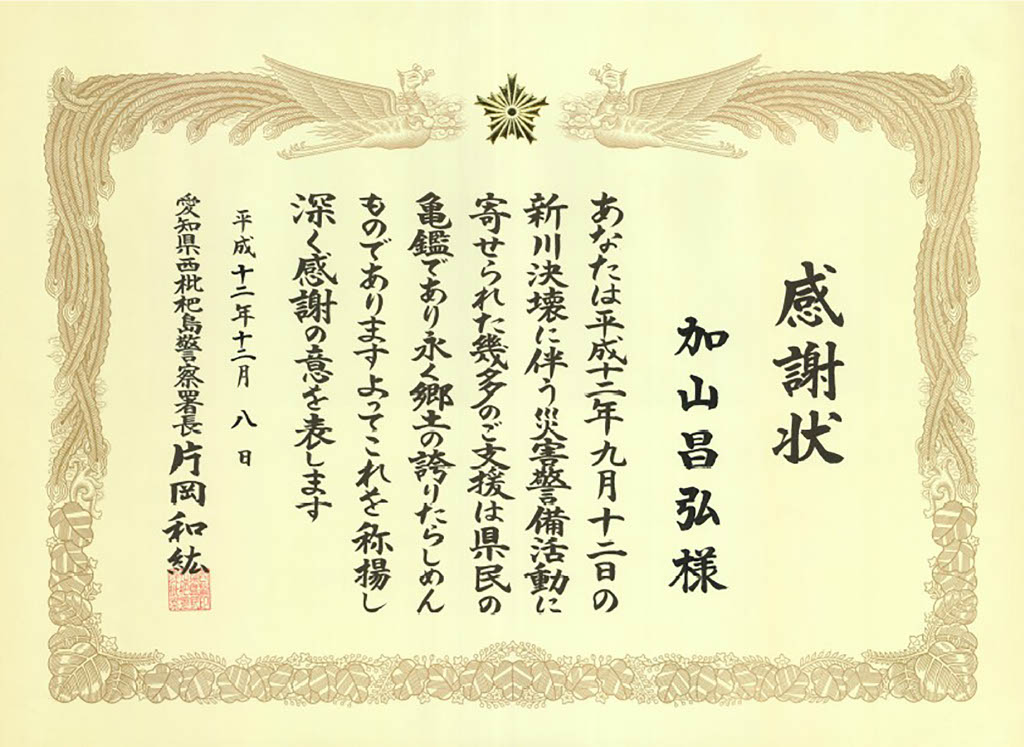 感謝状
加山昌弘様
あなたは平成十二年九月十二日の
新川決壊に伴う災害警備活動に
寄せられた幾多のご支援は県民の
亀鑑であり永く郷土の誇りたらしめん
ものでありますよってこれを称揚し
深く感謝の意を表します
平成十二年十二月八日
愛知県西枇杷島警察署長片岡和紘